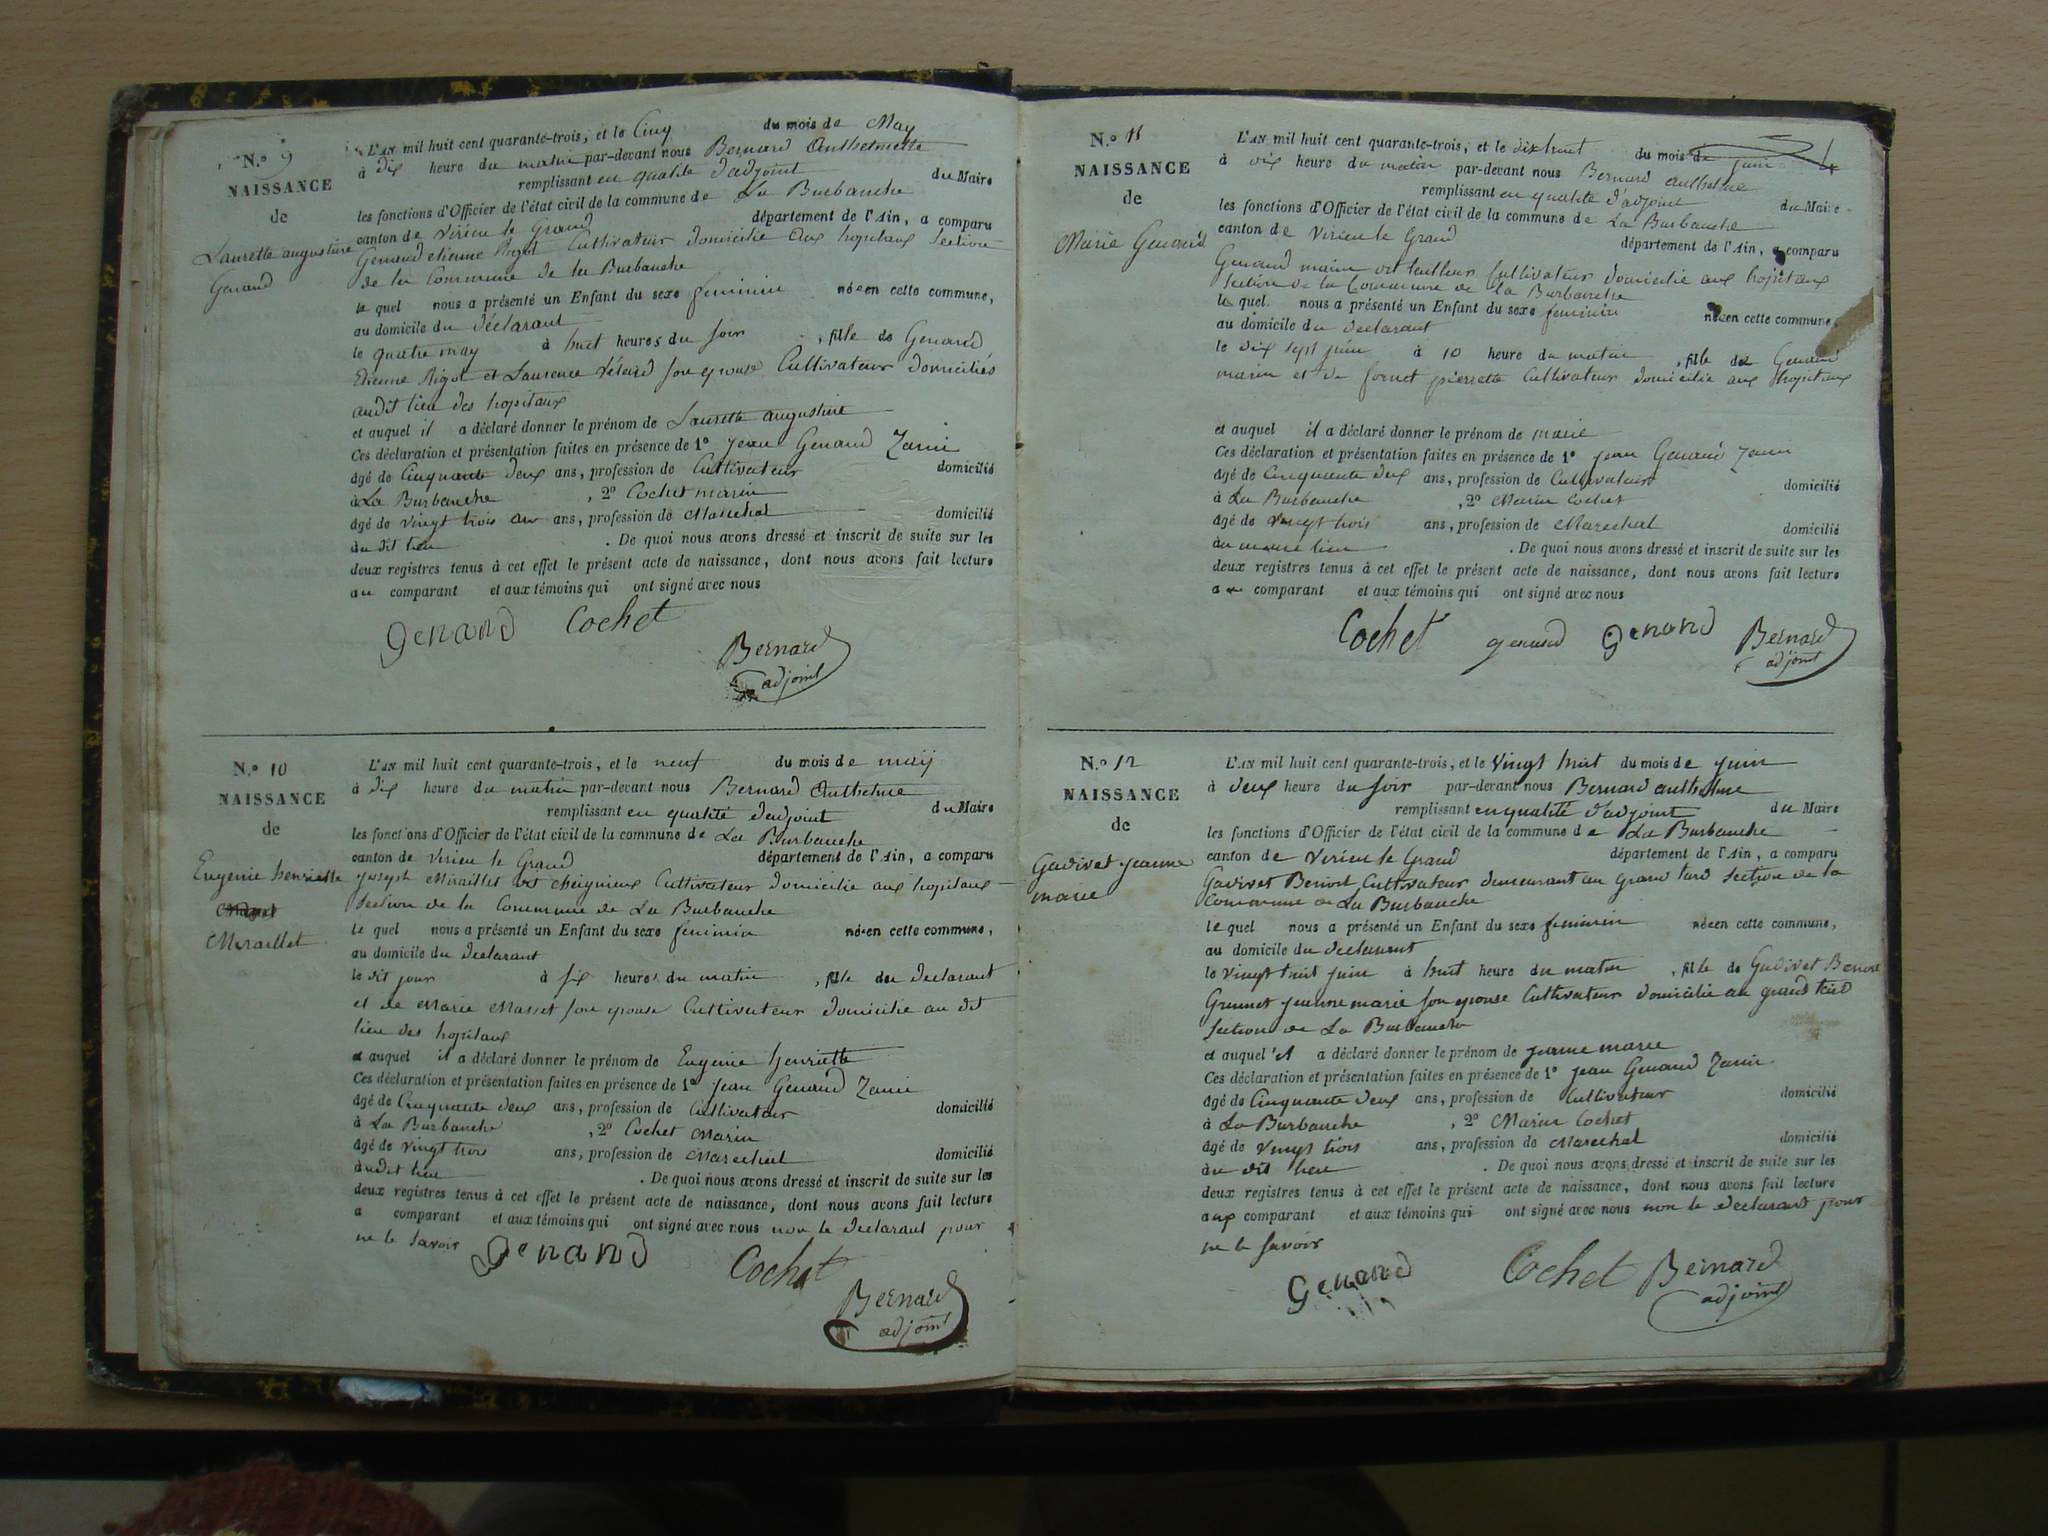 N.o 9
NAISSANCE
de
Laurette augustine
Genand
L'AN mil huit cent quarante-trois, et le Cinq du mois de May
à dix heure du matin par-devant nous Bernard Anthelmette
remplissant en qualité d'adjoint du Maire
les fonctions d'Officier de l'état civil de la commune de La Burbanche
canton de Virieu le Grand département de l'Ain, a comparu
Genand etienne Rigot Cultivateur domicilié aux hopitaux Section
de la Commune de la Burbanche
le quel nous a présenté un Enfant du sexe feminin né en cette commune,
au domicile du déclarant
le quatre may à huit heures du soir, fille de Genand
Etienne Rigot et Laurence Vétard son epouse Cultivateur domiciliés
audit lieu des hopitaux
et auquel il a déclaré donner le prénom de Laurette augustine
Ces déclaration et présentation faites en présence de 1º jean Genand Zanin
âgé de Cinquante deux ans, profession de Cultivateur domicilié
à La Burbanche, 2º Cochet marin
âgé de vingt trois ans, profession de Marechal domicilié
au dit lieu. De quoi nous avons dressé et inscrit de suite sur les
deux registres tenus à cet effet le présent acte de naissance, dont nous avons fait lecture
au comparant et aux témoins qui ont signé avec nous
Genand Cochet
Bernard
adjoint
N.o 10
NAISSANCE
de
Eugenie henriette
Miraillet
L'AN mil huit cent quarante-trois, et le neuf du mois de maij
à dix heure du matin par-devant nous Bernard Anthelme
remplissant en qualité d'adjoint du Maire
les fonctions d'Officier de l'état civil de la commune de La Burbanche
canton de Virieu le Grand département de l'Ain, a comparu
joseph Miraillet dit cheignieux Cultivateur domicilié aux hopitaux
Section de la Commune de La Burbanche
le quel nous a présenté un Enfant du sexe feminin né en cette commune,
au domicile du declarant
le dit jour à six heures du matin, fille du declarant
et de Marie Masset son epouse Cultivateur domicilié au dit
lieu des hopitaux
et auquel il a déclaré donner le prénom de Eugenie henriette
Ces déclaration et présentation faites en présence de 1º jean Genand Zanin
âgé de Cinquante deux ans, profession de Cultivateur domicilié
à La Burbanche, 2º Cochet Marin
âgé de vingt trois ans, profession de Marechal domicilié
au dit lieu. De quoi nous avons dressé et inscrit de suite sur les
deux registres tenus à cet effet le présent acte de naissance, dont nous avons fait lecture
a comparant et aux témoins qui ont signé avec nous non le declarant pour
ne le savoir
Genand Cochet
Bernard
adjoint
N.o 11
NAISSANCE
de
Marie Genand
L'AN mil huit cent quarante-trois, et le dix huit du mois de juin
à dix heure du matin par-devant nous Bernard anthelme
remplissant en qualité d'adjoint du Maire
les fonctions d'Officier de l'état civil de la commune de La Burbanche
canton de Virieu le Grand département de l'Ain, a comparu
Genand marin dit tailleur Cultivateur domicilié aux hopitaux
Section de la Commune de la Burbanche
le quel nous a présenté un Enfant du sexe feminin né en cette commune,
au domicile du declarant
le dix sept juin à 10 heure du matin, fille de Genand
marin et de fornet pierrette Cultivateur domicilié aux hopitaux
et auquel il a déclaré donner le prénom de marie
Ces déclaration et présentation faites en présence de 1º jean Genand Zanin
âgé de cinquante deux ans, profession de Cultivateur domicilié
à La Burbanche, 2º Marin Cochet
âgé de vingt trois ans, profession de Marechal domicilié
au meme lieu. De quoi nous avons dressé et inscrit de suite sur les
deux registres tenus à cet effet le présent acte de naissance, dont nous avons fait lecture
au comparant et aux témoins qui ont signé avec nous
Cochet genand Genand Bernard
adjoint
N.o 12
NAISSANCE
de
Gadivet jeanne
marie
L'AN mil huit cent quarante-trois, et le vingt huit du mois de juin
à deux heure du soir par-devant nous Bernard anthelme
remplissant en qualité d'adjoint du Maire
les fonctions d'Officier de l'état civil de la commune de La Burbanche
canton de Virieu le Grand département de l'Ain, a comparu
Gadivet Benoit Cultivateur demeurant au grand tard section de la
Commune de La Burbanche
le quel nous a présenté un Enfant du sexe feminin né en cette commune,
au domicile du declarant
le vingt huit juin à huit heure du matin, fille de Gadivet Benoit
Grumet jeanne marie son epouse Cultivateur domicilié au grand tard
Section de La Burbanche
et auquel il a déclaré donner le prénom de jeanne marie
Ces déclaration et présentation faites en présence de 1º jean Genand Zanin
âgé de Cinquante deux ans, profession de Cultivateur domicilié
à La Burbanche, 2º Marin Cochet
âgé de vingt trois ans, profession de Marechal domicilié
au dit lieu. De quoi nous avons dressé et inscrit de suite sur les
deux registres tenus à cet effet le présent acte de naissance, dont nous avons fait lecture
aux comparant et aux témoins qui ont signé avec nous non le declarant pour
ne le savoir
Genand Cochet Bernard
adjoint